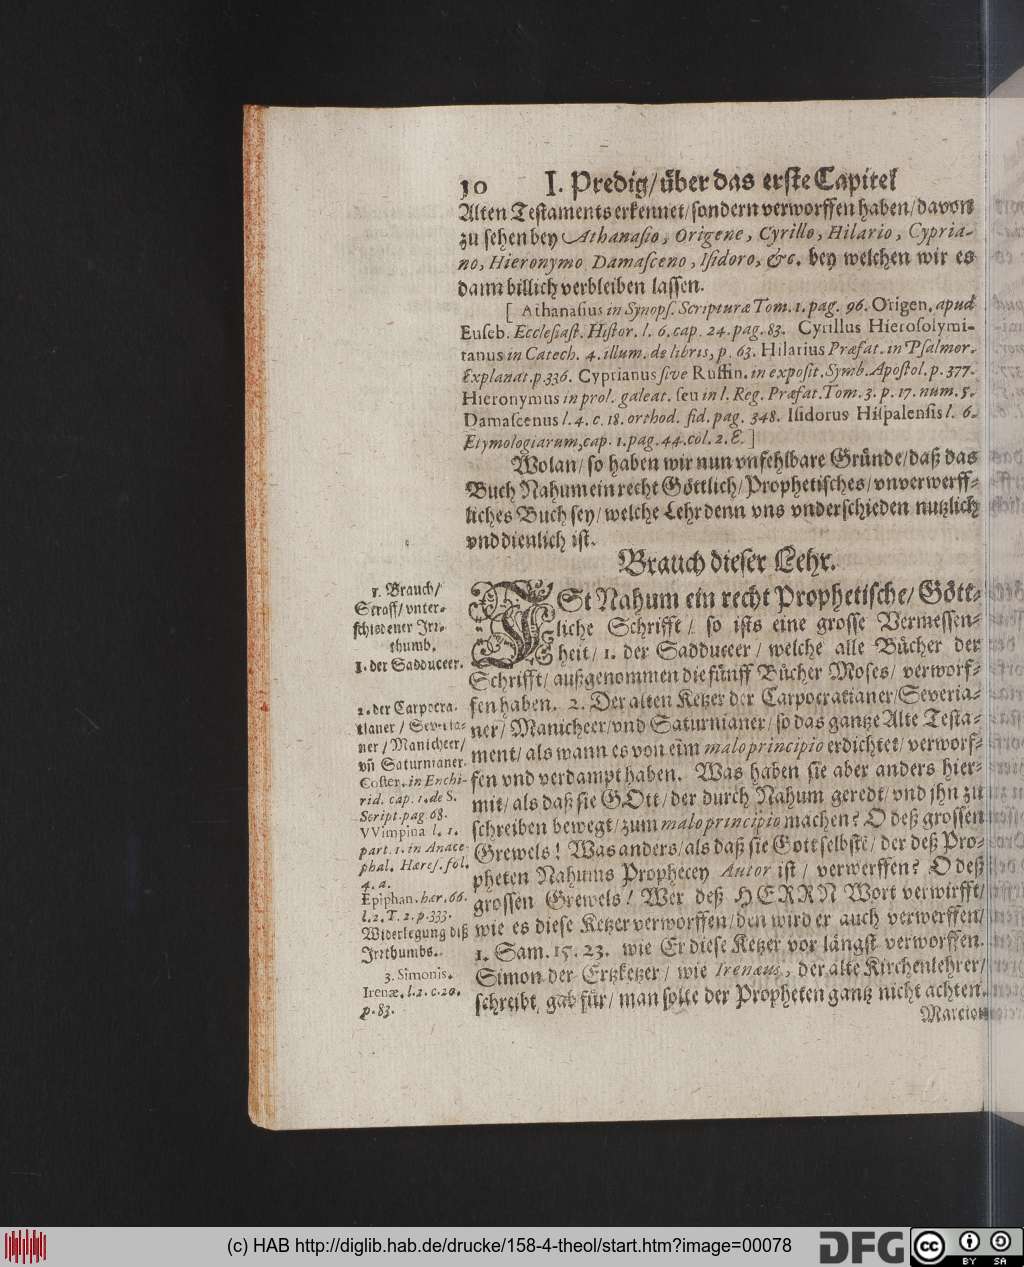 10 I. Predig/ über das erste Capitel
Alten Testaments erkennet/ sondern verworffen haben/ davon
zu sehen bey Athanasio, Origene, Cyrillo, Hilario, Cypria-
no, Hieronymo Damasceno, Isidoro, &c. bey welchen wir es
dann billich verbleiben lassen.
[ Athanasius in Synops. Scripturæ Tom. 1. pag. 96. Origen. apud
Euseb. Ecclesiast. Histor. l. 6. cap. 24. pag. 83. Cyrillus Hierosolymi-
tanus in Catech. 4. illum. de libris, p. 63. Hilarius Præfat. in Psalmor.
Explanat. p. 336. Cyprianus sive Ruffin. in exposit. Symb. Apostol. p. 377.
Hieronymus in prol. galeat. seu in l. Reg. Præfat. Tom. 3. p. 17. num. 5.
Damascenus l. 4. c. 18. orthod. fid. pag. 348. Isidorus Hispalensis l. 6.
Etymologiarum, cap. 1. pag. 44. col. 2. E. ]
Wolan/ so haben wir nun vnfehlbare Gründe/ daß das
Buch Nahum ein recht Göttlich/ Prophetisches/ vnverwerff-
liches Buch sey/ welche Lehr denn vns vnderschieden nutzlich
vnd dienlich ist.
Brauch dieser Lehr.
ISt Nahum ein recht Prophetische/ Gött-
liche Schrifft/ so ists eine grosse Vermessen-
heit/ 1. der Sadduceer/ welche alle Bücher der
Schrifft/ außgenommen die fünff Bücher Moses/ verworf-
fen haben. 2. Der alten Ketzer der Carpocratianer/ Severia-
ner/ Manicheer/ vnd Saturnianer/ so das gantze Alte Testa-
ment/ als wann es von eim malo principio erdichtet/ verworf-
fen vnd verdampt haben. Was haben sie aber anders hier-
mit/ als daß sie GOtt/ der durch Nahum geredt/ vnd jhn zu
schreiben bewegt/ zum malo principio machen? O deß grossen
Grewels! Was anders/ als daß sie Gott selbstē/ der deß Pro-
pheten Nahums Prophecey Autor ist/ verwerffen? O deß
grossen Grewels! Wer deß HERRN Wort verwirfft/
wie es diese Ketzer verworffen/ den wird er auch verwerffen/
1. Sam. 15. 23. wie Er diese Ketzer vor längst verworffen.
Simon der Ertzketzer/ wie Irenæus, der alte Kirchenlehrer/
schreibt/ gab für/ man solle der Propheten gantz nicht achten.
Marcion
1. Brauch/
Straff/ vnter-
schiedener Irr-
thumb.
1. der Sadduceer.
2. der Carpocra-
tianer/ Severia-
ner/ Manicheer/
vn̄ Saturnianer.
Coster. in Enchi-
rid. cap. 1. de S.
Script. pag. 68.
VVimpina l. 1.
part. 1. in Anace-
phal. Hæres. fol.
4. a.
Epiphan. hær. 66.
l. 2. T. 2. p. 333.
Widerlegung diß
Irrthumbs.
3. Simonis.
Irenæ. l. 2. c. 20.
p. 83.
(c) HAB http://diglib.hab.de/drucke/158-4-theol/start.htm?image=00078
DFG
cc
BY SA